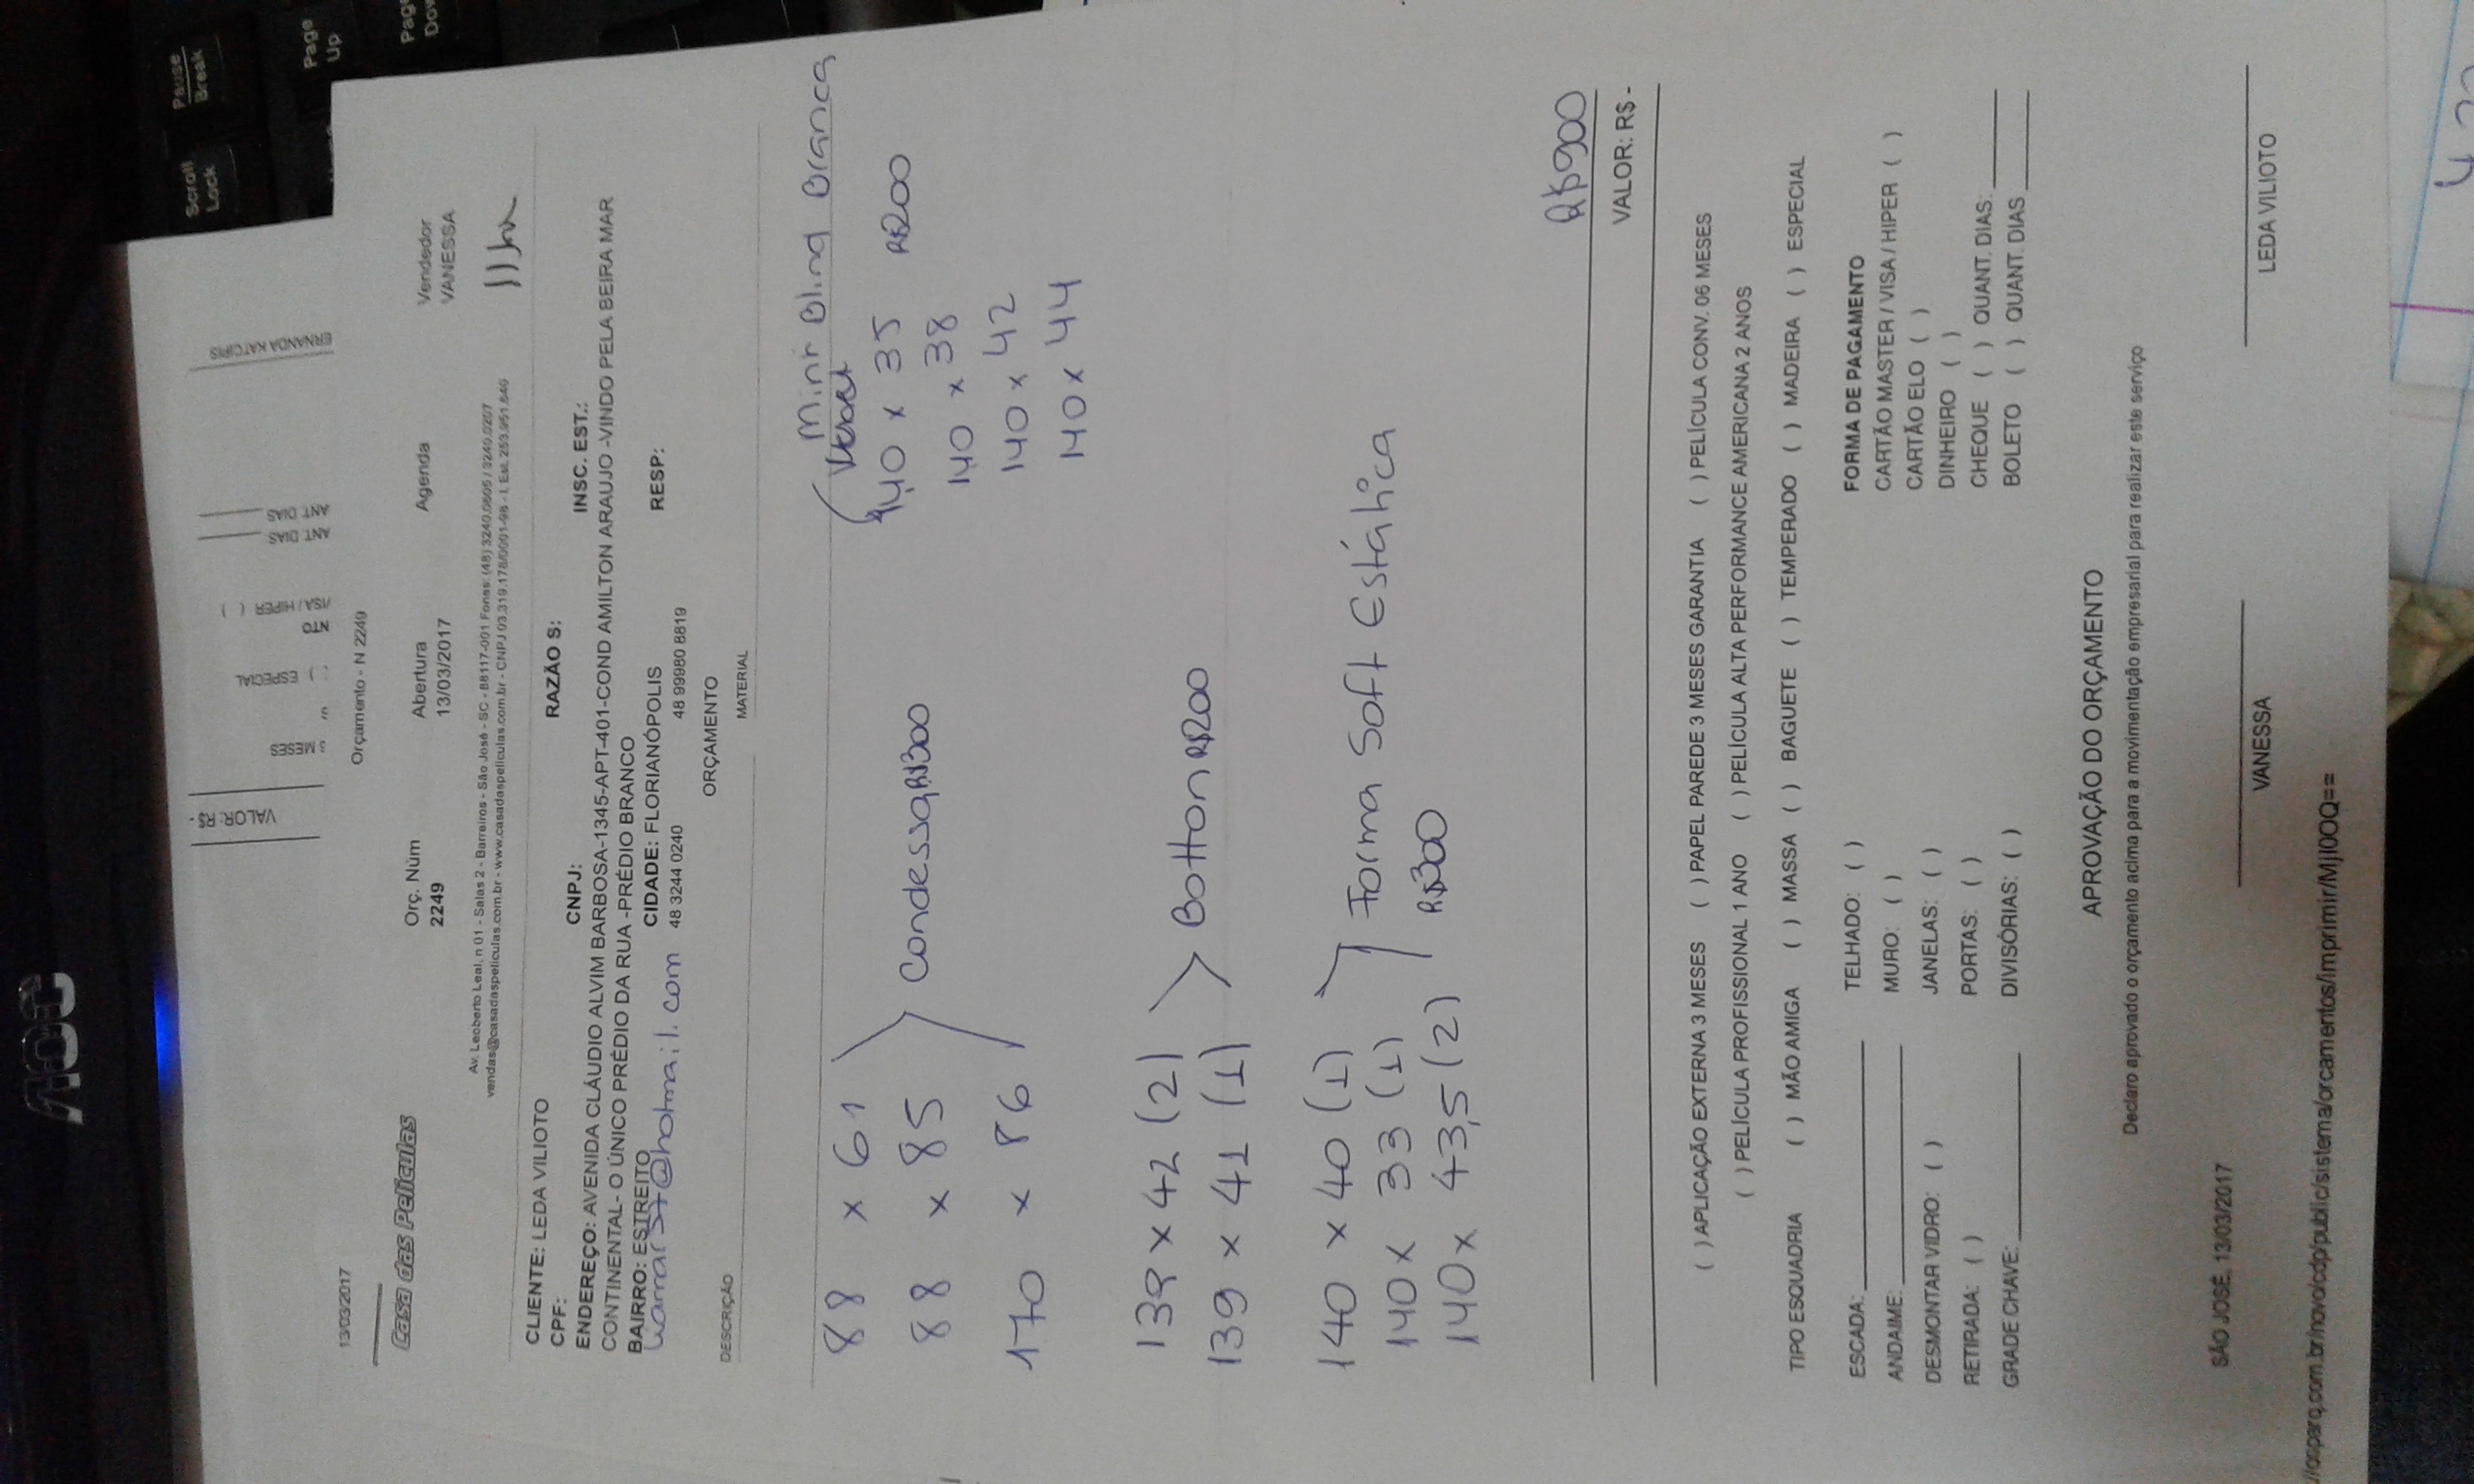 AOC
Pause
Break
Scroll
Lock
Page
Up
ERNANDA KATCIPIS
ANT. DIAS
ANT. DIAS
/ISA / HIPER ( )
) ESPECIAL
MESES
VALOR: R$ -
13/03/2017
Orçamento - N 2249
Casa das Peliculas
Orç. Núm
2249
Abertura
13/03/2017
Agenda
Vendedor
VANESSA
11hr
Av. Leoberto Leal, n 01 - Salas 2 - Barreiros - São José - SC - 88117-001 Fones: (48) 3240.0605 / 3240.0207
vendas@casadaspeliculas.com.br - www.casadaspeliculas.com.br - CNPJ 03.319.178/0001-98 - I. Est. 253.951.646
CLIENTE: LEDA VILIOTO
RAZÃO S:
CPF:
CNPJ:
INSC. EST.:
ENDEREÇO: AVENIDA CLÁUDIO ALVIM BARBOSA-1345-APT-401-COND AMILTON ARAUJO -VINDO PELA BEIRA MAR
CONTINENTAL- O ÚNICO PRÉDIO DA RUA -PRÉDIO BRANCO
BAIRRO: ESTREITO
CIDADE: FLORIANÓPOLIS
RESP:
@hotmail.com
48 3244 0240
48 99980 8819
ORÇAMENTO
DESCRIÇÃO
MATERIAL
Mini Bling Branca
88 x 61
140 x 35 R$200
88 x 85
Condessa R$300
140 x 38
170 x 86
140 x 42
140 x 44
139 x 42 (2)
Botton R$200
139 x 41 (1)
140 x 40 (1)
Forma Soft Estática
140 x 33 (1)
R$300
140 x 43,5 (2)
R$900
VALOR: R$ -
( ) APLICAÇÃO EXTERNA 3 MESES ( ) PAPEL PAREDE 3 MESES GARANTIA ( ) PELÍCULA CONV. 06 MESES
( ) PELÍCULA PROFISSIONAL 1 ANO ( ) PELÍCULA ALTA PERFORMANCE AMERICANA 2 ANOS
TIPO ESQUADRIA ( ) MÃO AMIGA ( ) MASSA ( ) BAGUETE ( ) TEMPERADO ( ) MADEIRA ( ) ESPECIAL
ESCADA:
TELHADO: ( )
FORMA DE PAGAMENTO
ANDAIME:
MURO: ( )
CARTÃO MASTER / VISA / HIPER ( )
CARTÃO ELO ( )
DESMONTAR VIDRO: ( )
JANELAS: ( )
DINHEIRO ( )
RETIRADA: ( )
PORTAS: ( )
CHEQUE ( ) QUANT. DIAS:
GRADE CHAVE:
DIVISÓRIAS: ( )
BOLETO ( ) QUANT. DIAS
APROVAÇÃO DO ORÇAMENTO
Declaro aprovado o orçamento acima para a movimentação empresarial para realizar este serviço
SÃO JOSÉ, 13/03/2017
VANESSA
LEDA VILIOTO
/osparq.com.br/novo/cdp/public/sistema/orcamentos/imprimir/MjI0OQ==